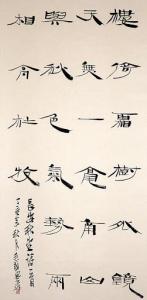 樓倚霜樹外鏡
天無一毫南山
與秋色氣勢兩
相高杜牧
長安秋望